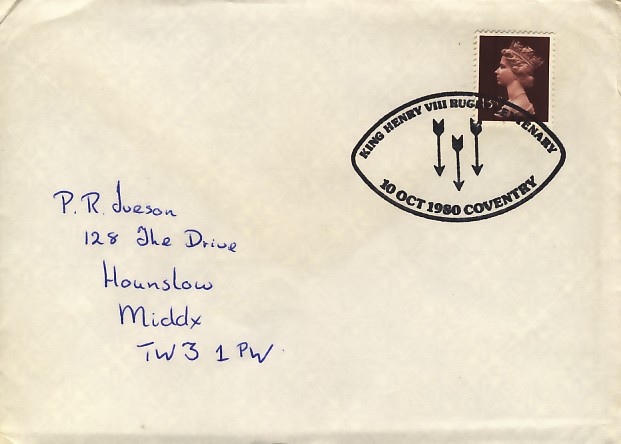 KING HENRY VIII RUGBY CENTENARY
10 OCT 1980 COVENTRY
P. R. Iveson
128 The Drive
Hounslow
Middx
TW3 1PW